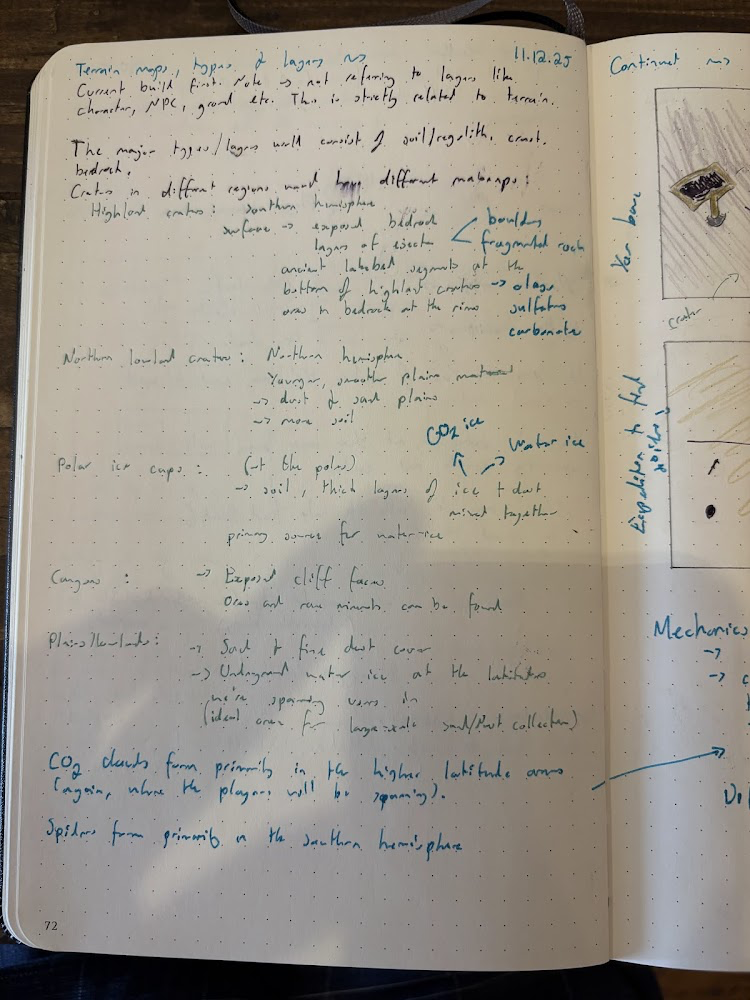 Terrain maps, types & layers ~>
11.12.25
Current build first. Note -> not referring to layers like
character, NPC, ground etc. This is strictly related to terrain.
The major types/layers would consist of soil/regolith, crust,
bedrock.
Craters in different regions would have different makeups:
Highland craters: Southern hemisphere
surface -> exposed bedrock
layers of ejecta
boulders
fragmented rock
ancient lakebed segments at the
bottom of highland craters -> clays
ores in bedrock at the rims
sulfates
carbonates
Northern lowland craters: Northern hemisphere
Younger, smoother plains material
-> dust & sand plains
-> more soil
CO2 ice
Water ice
Polar ice caps: (at the poles)
-> soil, thick layers of ice + dust
mixed together
primary source for water-ice
Canyons: -> Exposed cliff faces
Ores and rare minerals can be found
Plains/lowlands: -> Sand & fine dust cover
-> Underground water ice at the latitudes
we're spawning users in
(ideal area for large-scale sand/dust collection)
CO2 clouds form primarily in the higher latitude areas
(again, where the players will be spawning).
Spiders form primarily in the southern hemisphere
72
Continued ~>
Your base
crater
Expedition to find
Mechanics
->
->